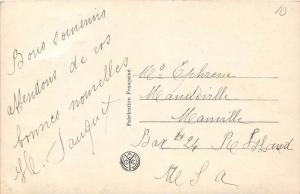 Bons souvenirs
attendons de vos
bonnes nouvelles
H. Fauquet
Fabrication Française
Mr Ephrem
Mandeville
Manville
Box # 24 R Island
U S A
10